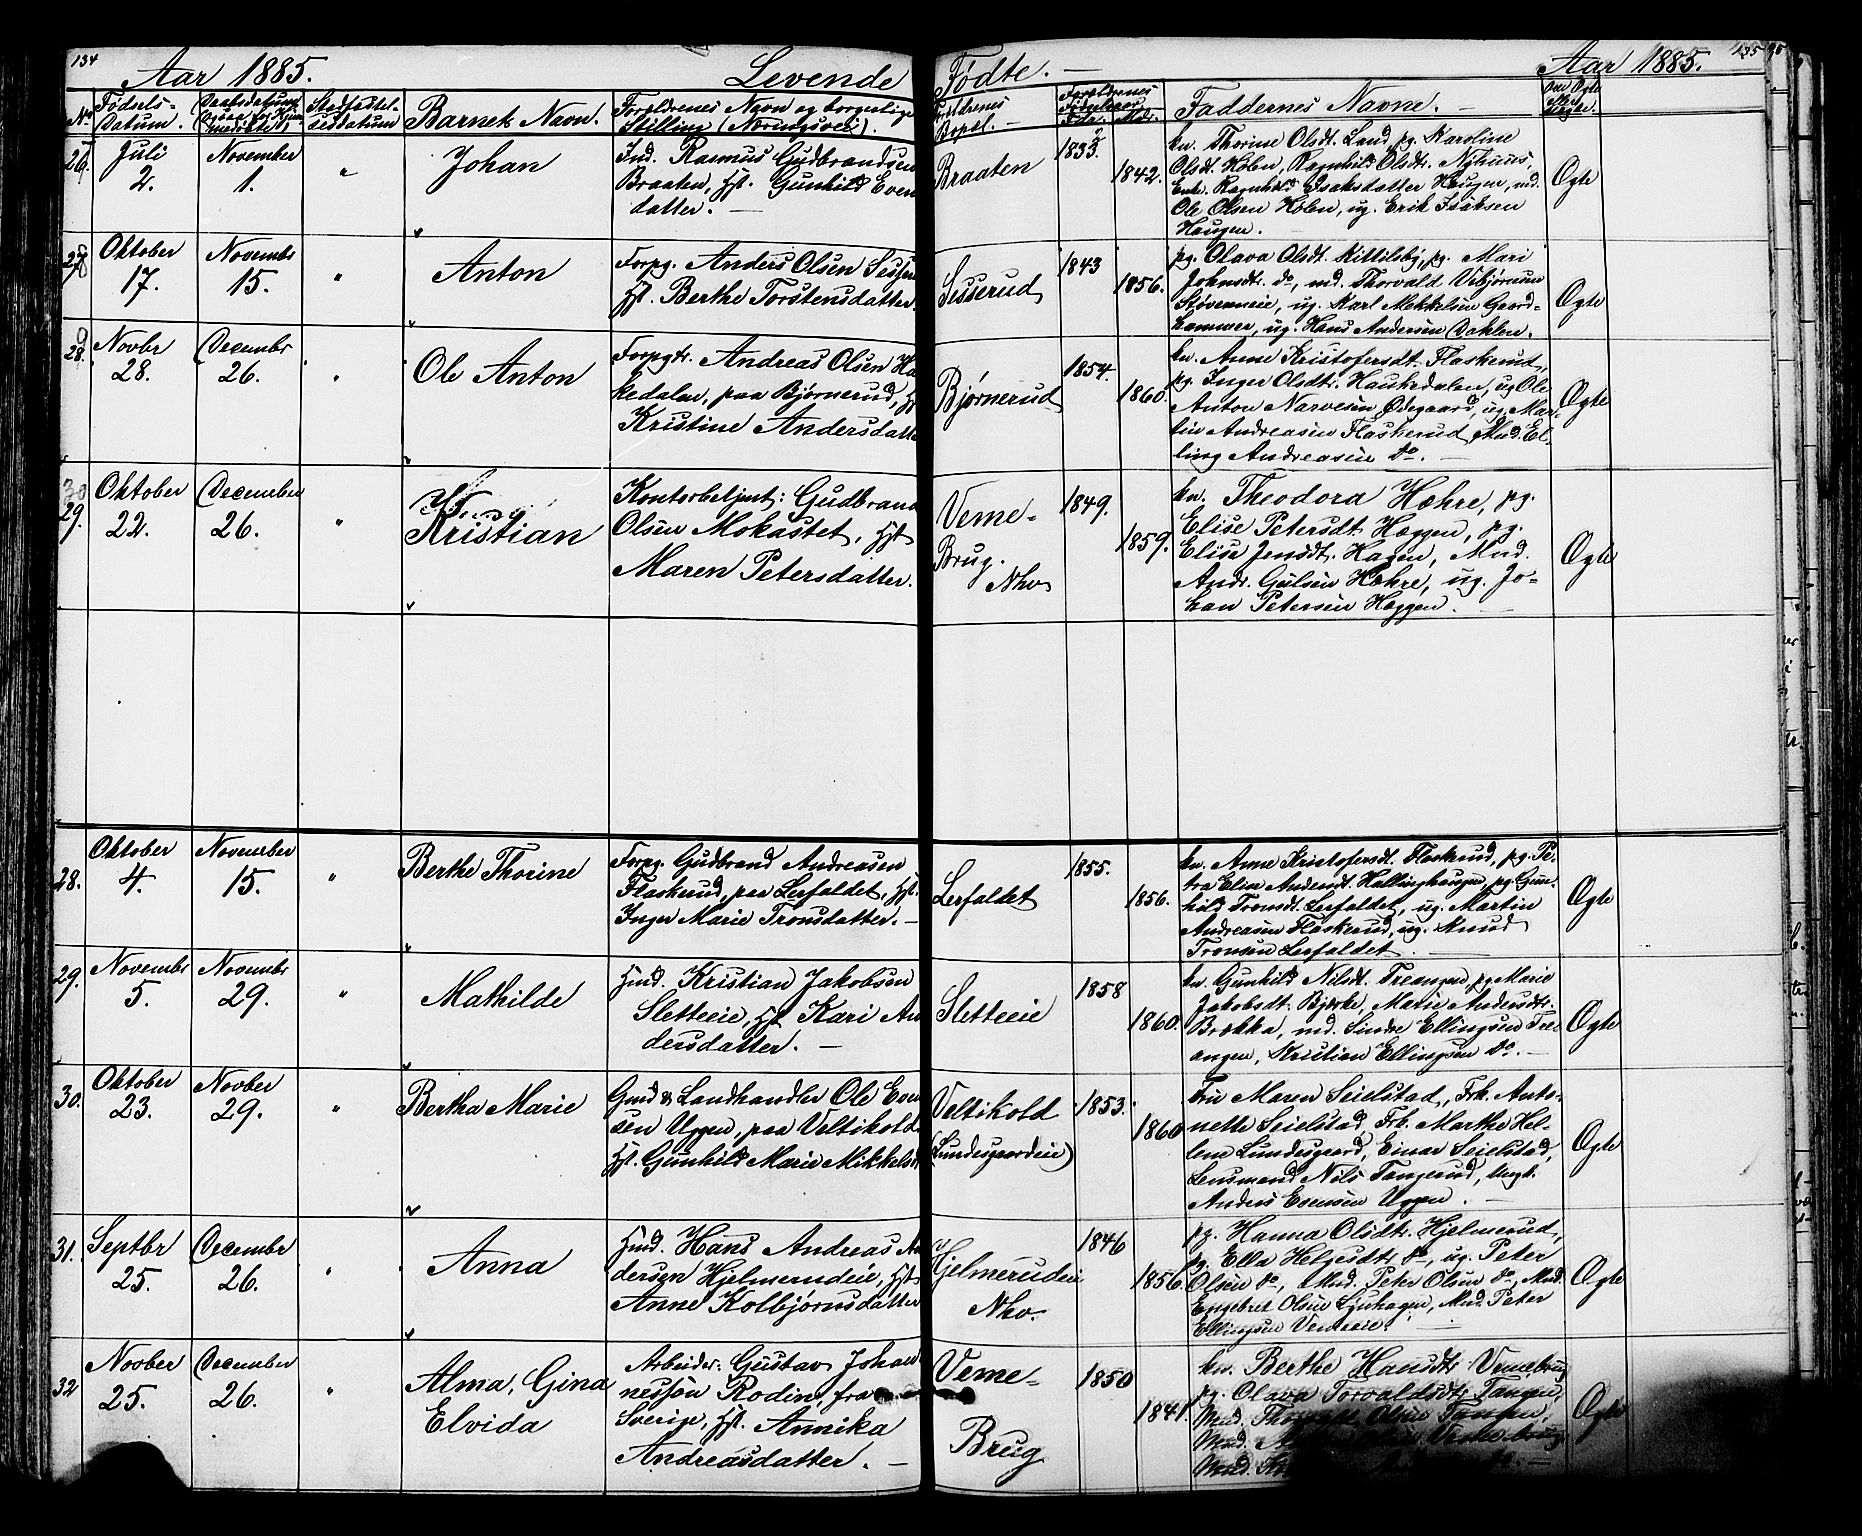 134
Aar 1885.
Levende
Födte.
Aar 1885.
135
No
Födsels-
Datum.
Daabsdatum
Stadfæstel-
sesdatum
Barnets Navn.
Forældrenes Navn og borgerlige
Stilling (Næringsvei).
Forældrenes
Bopæl.
Forældrenes
Födselsaar
Fdr. Mdr.
Faddernes Navne.
Om Ægte
eller
Uægte.
26
Juli
2.
November
1.
"
Johan
Ind. Rasmus Gudbrandsen
Braaten, Hst. Gunhild Even
datter.
Braaten
1833.
1842.
kn. Thorine Olsdt. Land, pg. Karoline
Olsdt. Hölen, Ragnhild Olsdtr. Nyhuus,
Enke Ragnhild Isaksdatter Haugen, md.
Ole Olsen Hölen, ug. Erik Isaksen
Haugen.
Ægte
27
Oktober
17.
Novembr
15.
"
Anton
Forpg. Anders Olsen
Hst. Berthe Torstensdatter.
Sesserud
1843
1856.
pg. Olava Olsdt. Kittilsby, pg. Mari
Johnsdt. do, md. Thorvald
ug. Karl Mekkelsen Gaard-
hammer, ug. Hans Andersen Dahlen.
Ægte
28.
Novbr
28.
Decembr
26.
"
Ole Anton
Forpgtr. Andreas Olsen Ha
kedalen, paa Bjørnerud, Hst
Kristine Andersdatte
Bjørnerud
1854.
1860.
kn. Anne Kristofersdt. Flaskerud,
pg. Inger Olsdtr. Haukedalen, ug Ole
Anton Narvesen Ødegaard, ug. Mar-
tin Andreasen Flaskerud, Md. El-
ling Andreasen do.
Ægte
30
29.
Oktober
22.
December
26.
"
Kristian
Kontorbetjent: Gudbrand
Olsen Mokastet, Hst
Maren Petersdatter.
Veme-
Brug.
Nho
1849.
1859.
kn. Theodora Hæhre, pg.
Elise Petersdt. Hæggen, pg.
Elise Jensdt. Hagen, Md.
Andr. Gulsen Hæhre, ug. Jo-
han Petersen Hæggen.
Ægte
28.
Oktober
4.
November
15.
"
Berthe Thorine
Forpg. Gudbrand Andreasen
Flaskerud, paa Lerfaldet, Hst.
Inger Marie Tronsdatter.
Lerfaldet
1855.
1856.
kn. Anne Kristofersdt. Flaskerud, pg. Pe-
tra Elise Andersdt. Hallinghaugen, pg. Gun-
hild Tronsdt. Lerfaldet, ug. Martin
Andreasen Flaskerud, ug. Knud
Tronsen Lerfaldet
Ægte
29.
Novembr
5.
Novembr
29.
"
Mathilde
Hmd. Kristian Jakobsen
Sletteeie, Hst Kari An
dersdatter.
Sletteeie
1858
1860
kn. Gunhild Nilsdt. Treangen pg Marie
Jakobsdt. Bjerke, Marie Andersdtr.
Brække, md. Sindre Ellingsen Tre-
angen, Kristian Ellingsen do.
Ægte
30.
Oktober
23.
November
29.
"
Bertha Marie
Gmd & Landhandler Ole Even
sen Uggen, paa Veltikold
Hst. Gunhild Marie Mikkelsdt
Veltikold
(Lundesgaardeie)
1853.
1860
Fru Maren Seielstad, Frk. Anto-
nette Seielstad, Frk. Marthe Hel-
lene Lundesgaard, Einar Seielstad,
Lensmand Nils Tangerud, Ungk.
Anders Evensen Uggen.
Ægte
31.
Septbr
25.
Decembr
26.
"
Anna
Hmd. Hans Andreas An
dersen Hjelmerudeie, Hst
Anne Kolbjørnsdatter
Hjelmerudeie
Nho.
1846
1856.
pg. Hanna Olsdtr. Hjelmerud,
pg. Ella Helgesdtr. do, ug. Peter
Olsen do, Md. Peter Olsen do, Md.
Engebret Olsen Ljushagen, Md. Peter
Ellingsen Vemeeie.
Ægte
32
November
25.
December
26.
"
Alma, Gina
Elvida
Arbeider: Gustav Johan
nessøn Rodin, fra
Sverige, Hst. Annika
Andreasdatter.
Veme-
Brug
1850
1841.
kn. Berthe Hansdtr. Vemebrug
pg. Olava Torvaldsdtr. Tangen,
Md. Thorvald Olsen Tangen,
Md.
Md.
Ægte